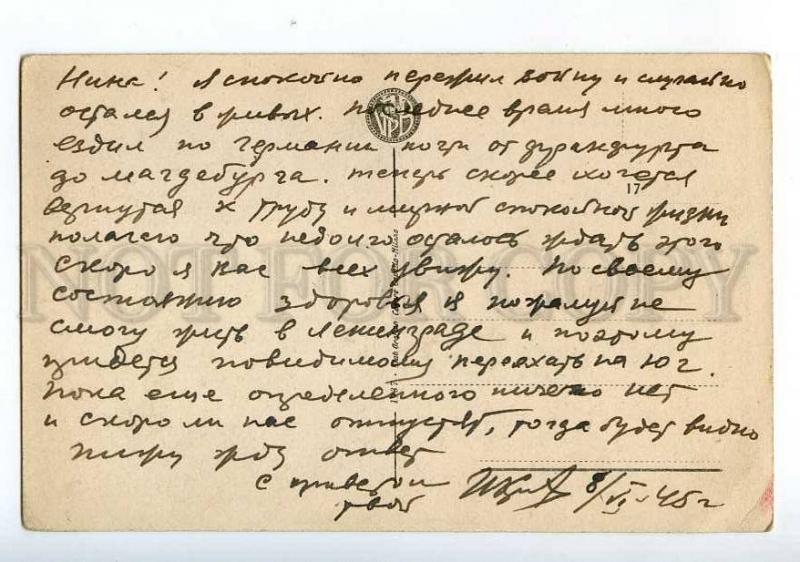 Нина! Я спокойно пережил войну и случайно
остался в живых. Последнее время много
ездил по Германии почти от Франкфурта
до Магдебурга. Теперь скорее хочется
17
вернутся к труду и мирной спокойной жизни
полагаю что недолго осталось ждать этого
скоро я вас всех увижу. По своему
состоянию здоровья я пожалуй не
смогу жить в Ленинграде и поэтому
придется повидимому переехать на Юг.
Пока еще определенного ничего нет
и скоро ли нас отпустят, тогда будет видно
пиши жду ответ
с приветом
твой 8/VI-45 г
NOT FOR COPY